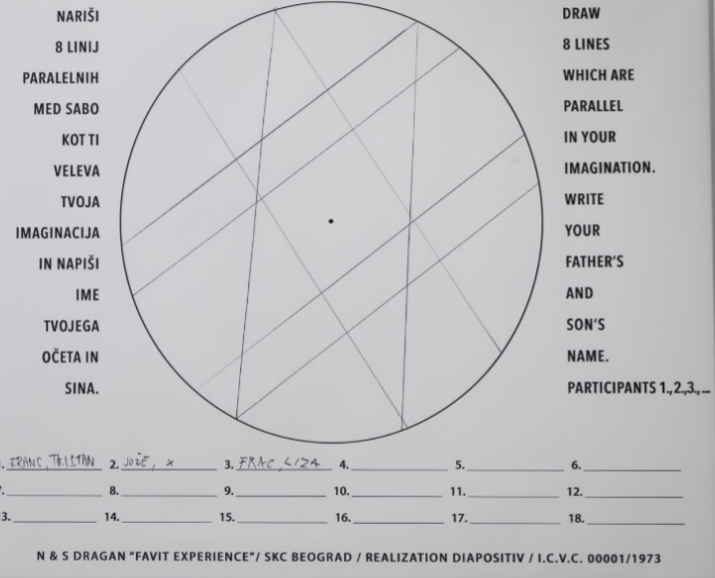 NARIŠI
8 LINIJ
PARALELNIH
MED SABO
KOT TI
VELEVA
TVOJA
IMAGINACIJA
IN NAPIŠI
IME
TVOJEGA
OČETA IN
SINA.
DRAW
8 LINES
WHICH ARE
PARALLEL
IN YOUR
IMAGINATION.
WRITE
YOUR
FATHER'S
AND
SON'S
NAME.
PARTICIPANTS 1.,2.,3.,...
FRANC, TRISTAN 2. JOŽE, X 3. FRAC, LIZA 4. 5. 6.
8. 9. 10. 11. 12.
3. 14. 15. 16. 17. 18.
N & S DRAGAN "FAVIT EXPERIENCE"/ SKC BEOGRAD / REALIZATION DIAPOSITIV / I.C.V.C. 00001/1973